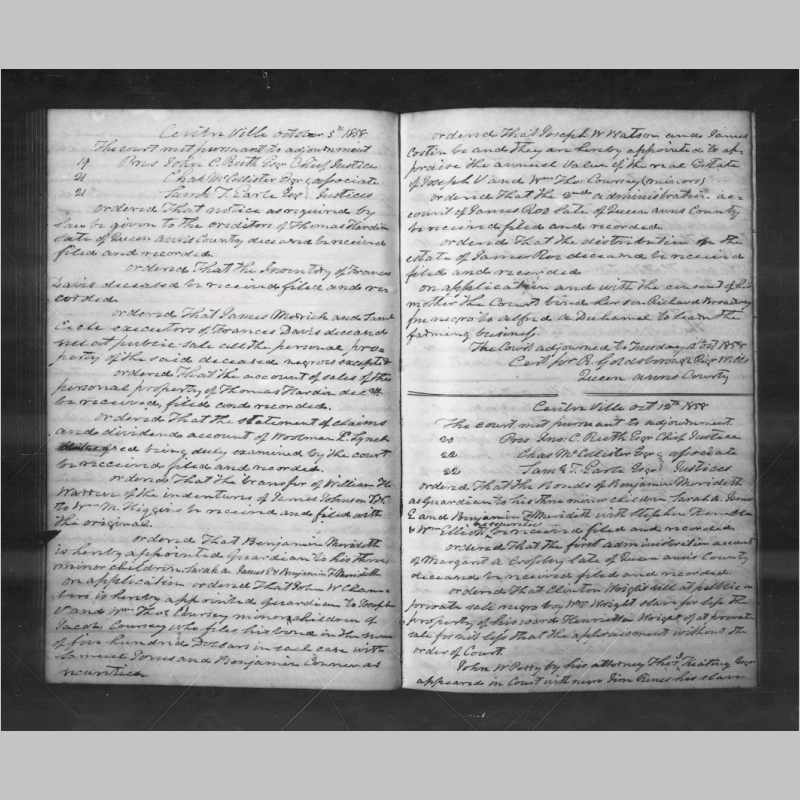 CentreVille October 5th 1858
The court met pursuant to adjournment
19 Pres John C. Ruth Esqr Chief Justice
21 Chas McCollister Esqr associate
21 Saml T. Earle Esqr Justices
ordered That notice as required by
Law be given to the creditors of Thomas Hardin
late of Queen anns County deceased be received
filed and recorded.
ordered That the Inventory of Frances
Davis deceased be received filed and re-
corded
ordered That James Merrick and
executors of Frances Davis deceased
sell at public sale all the personal pro-
perty of the said deceased negroes excepted
ordered That the account of sales of the
personal property of Thomas Hardin decd
be received, filed and recorded.
ordered That the statement of claims
and dividends account of Woolman E. Lynch
being duly examined by the court
be received filed and recorded.
ordered That the transfer of William The
Warren of the indentures of James Johnson
to Wm M. Higgins be received and filed with
the original.
ordered That Benjamin Merideth
is hereby appointed Guardian to his three
minor children Sarah A. James E & Benjamin F Merideth
on application ordered That John W Cham-
bers is hereby appointed Guardian to Joseph
V and Wm Thos Coursey minor children of
Jacob Coursey who files his bond in the sum
of five hundred Dollars in each case with
Samuel and Benjamin as
securities
ordered That Joseph W Watson and James
Costin be and they are hereby appointed to ap-
praise the annual value of the real Estate
of Joseph V and Wm Thos Coursey (minors)
ordered That the 2nd administration ac-
count of James Roe late of Queen anns County
be received filed and recorded.
ordered That the distribution on the
estate of James Roe deceased be received
filed and recorded
on application and with the consent of his
mother the Court bind her son Richard
fm negro to alfred A Duhamel to learn the
farming business.
The Court adjourned to Tuesday 12 Oct 1858
Cert Wm R. Goldsborough Regr Wills
Queen anns County
CentreVille Oct 12th 1858
The court met pursuant to adjournment
20 Pres Jno C. Ruth Esqr Chief Justice
22 Chas McCollister Esqr associate
22 Saml T. Earle Esqr Justices
ordered That the Bonds of Benjamin Merideth
as Guardian to his three minor children Sarah A. James
E. and Benjamin F Merideth with Stephen
& Wm Elliott his securities be received filed and recorded
ordered That the first administration account
of Margaret A late of Queen anns County
deceased be received filed and recorded
ordered That Clinton Wright sell at public or
private sale negro boy Wright slave for life the
property of his ward Henrietta Wright if at private
sale for not less than the appraisement without the
order of Court.
John W Petty by his attorney Thos J. Keating Esqr
appeared in Court with negro Jim his slave